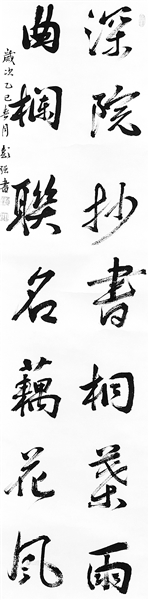 深院抄書桐葉雨
曲欄聯名藕花風
歲次乙巳春月 彭強書